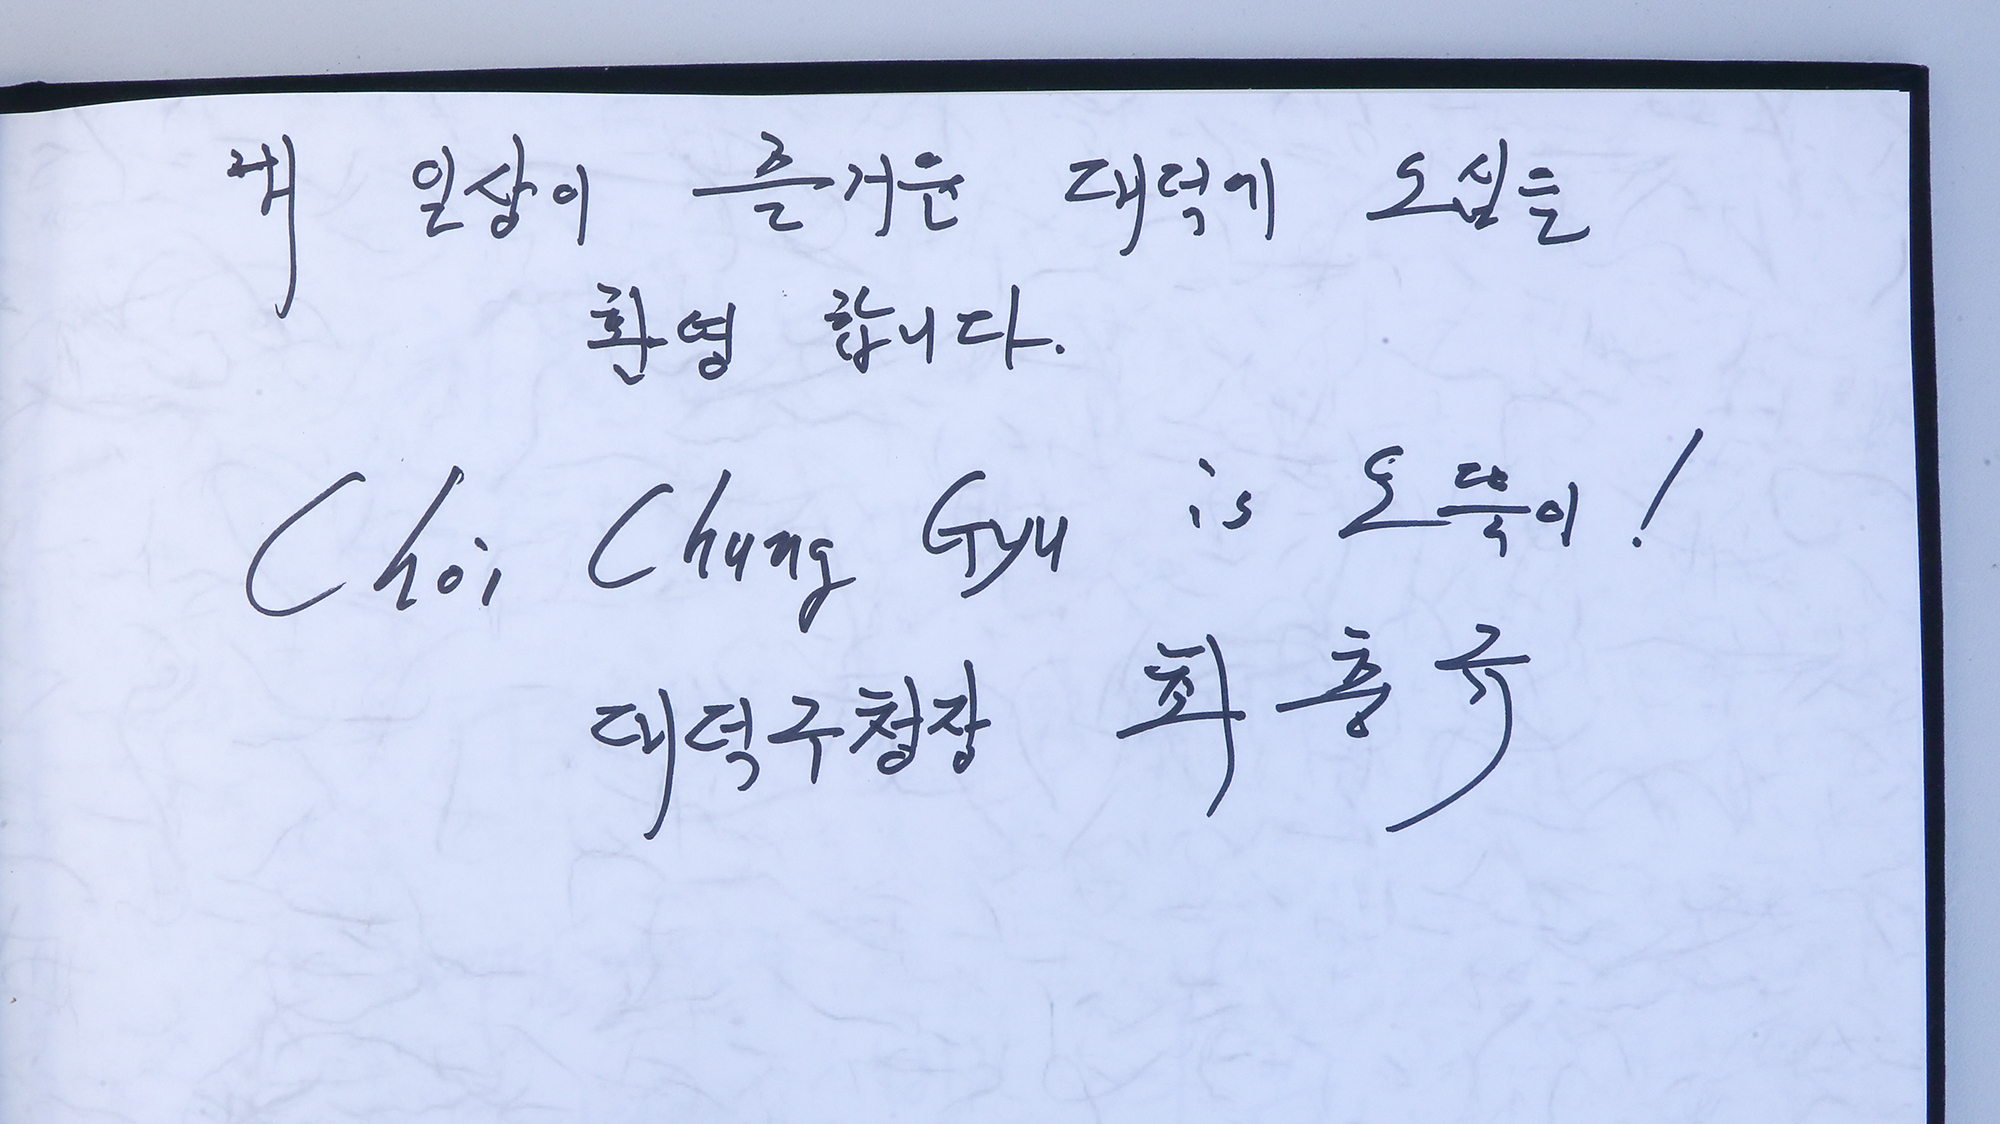 내 일상이 즐거운 대덕에 오심을
환영 합니다.
Choi Chung Gyu is 오뚝이!
대덕구청장 최충규